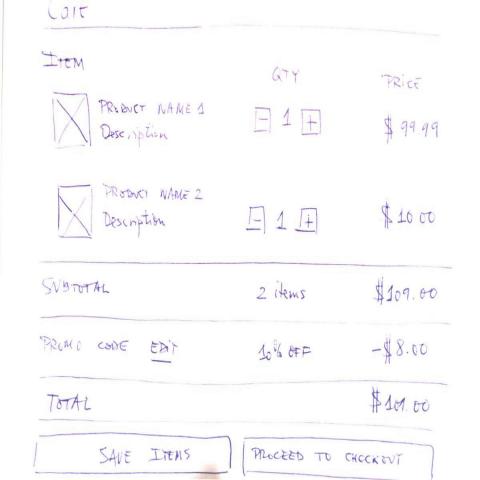 ITEM
QTY
PRICE
PRODUCT NAME 1
Description
- 1 +
$ 99.99
PRODUCT NAME 2
Description
- 1 +
$ 10.00
SUBTOTAL 2 items $109.00
PROMO CODE EDIT 10% OFF -$8.00
TOTAL $101.00
SAVE ITEMS
PROCEED TO CHECKOUT